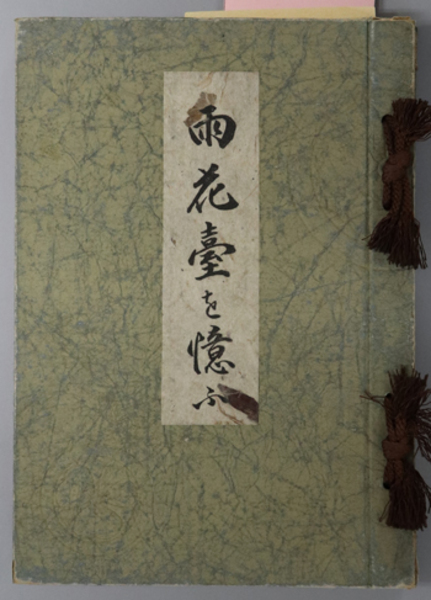 雨花臺を憶ふ